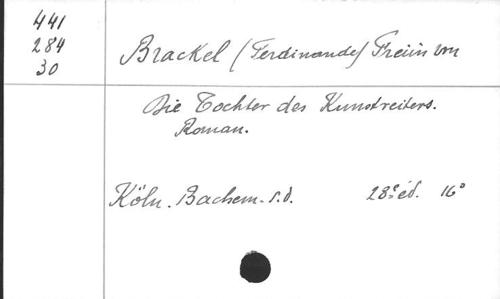 441
284
30
Brackel (Ferdinande) Freiin von
Die Tochter des Kunstreiters.
Roman.
Köln. Bachem. s.d. 28e éd. 16°